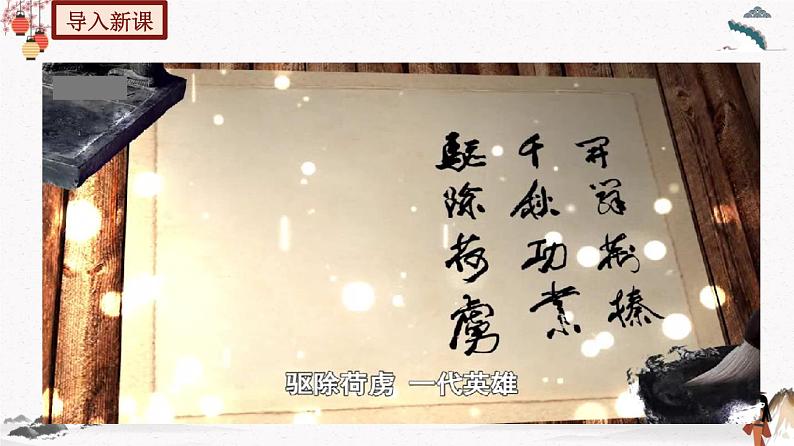 导入新课
开辟荆榛
千秋功业
驱除荷虏
驱除荷虏 一代英雄